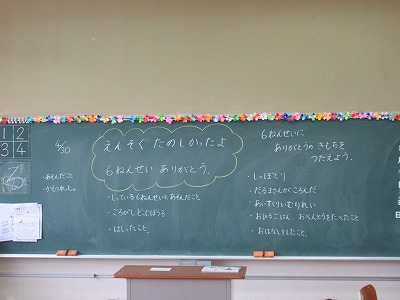 1 2
3 4
4/30
あそんだこと
うれしかった。
えんそく たのしかったよ
6ねんせい ありがとう。
・しっている6ねんせいとあそんだこと
・ころがしドッジぼうる
・はしったこと。
6ねんせいに
ありがとうの きもちを
つたえよう。
・しっぽとり
・だるまさんがころんだ
・あいすくりいむりれい
・おひるごはん、おべんとうをたべたこと
・おはなししたこと。